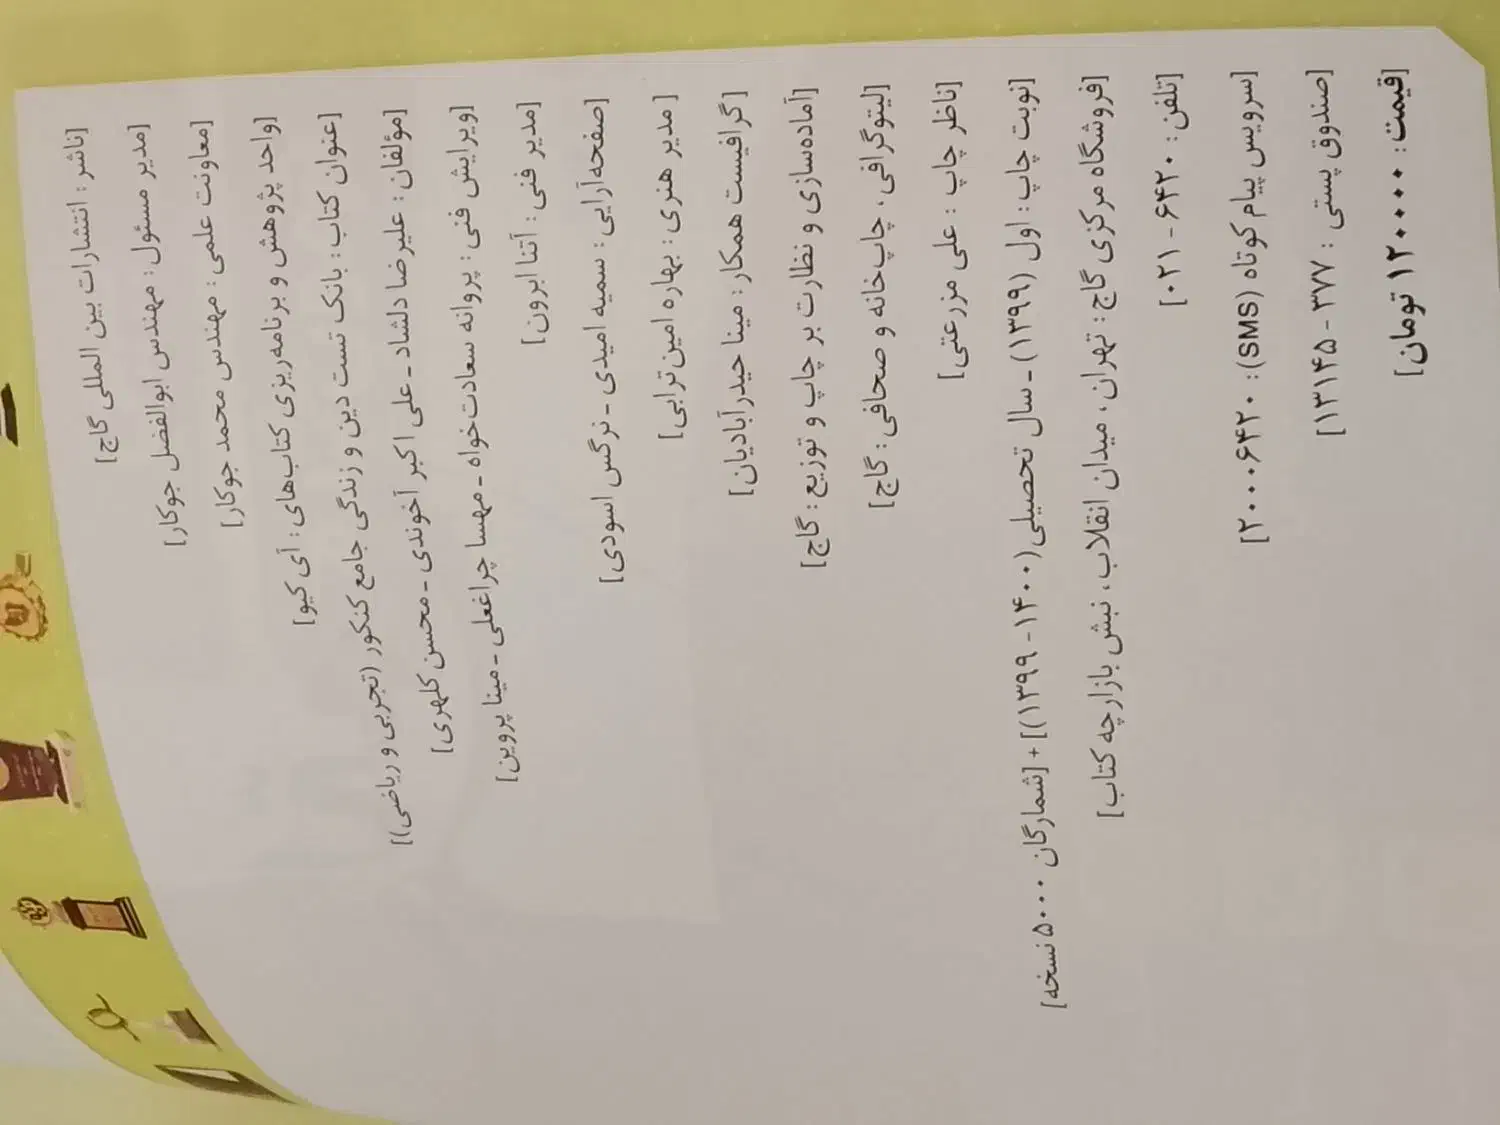 [ناشر : انتشارات بین المللی گاج]
[مدیر مسئول : مهندس ابوالفضل جوکار]
[معاونت علمی : مهندس محمد جوکار]
[واحد پژوهش و برنامه‌ریزی کتاب‌های : آی کیو]
[عنوان کتاب : بانک تست دین و زندگی جامع کنکور (تجربی و ریاضی)]
[مؤلفان : علیرضا دلشاد - علی اکبر آخوندی - محسن کلهری]
[ویرایش فنی : پروانه سعادت‌خواه - مهسا چراغعلی - مینا پروین]
[مدیر فنی : آتنا ابرون]
[صفحه‌آرایی : سمیه امیدی - نرگس اسودی]
[مدیر هنری : بهاره امین‌ترابی]
[گرافیست همکار : مینا حیدرآبادیان]
[آماده‌سازی و نظارت بر چاپ و توزیع : گاج]
[لیتوگرافی، چاپ‌خانه و صحافی : گاج]
[ناظر چاپ : علی مزرعتی]
[نوبت چاپ : اول (۱۳۹۹) - سال تحصیلی (۱۴۰۰ - ۱۳۹۹)] + [شمارگان ۵۰۰۰ نسخه]
[فروشگاه مرکزی گاج : تهران، میدان انقلاب، نبش بازارچه کتاب]
[تلفن : ۶۴۲۰ - ۰۲۱]
[سرویس پیام کوتاه (SMS) : ۲۰۰۰۶۴۲۰]
[صندوق پستی : ۳۷۷ - ۱۳۱۴۵]
[قیمت : ۱۲۰۰۰۰ تومان]